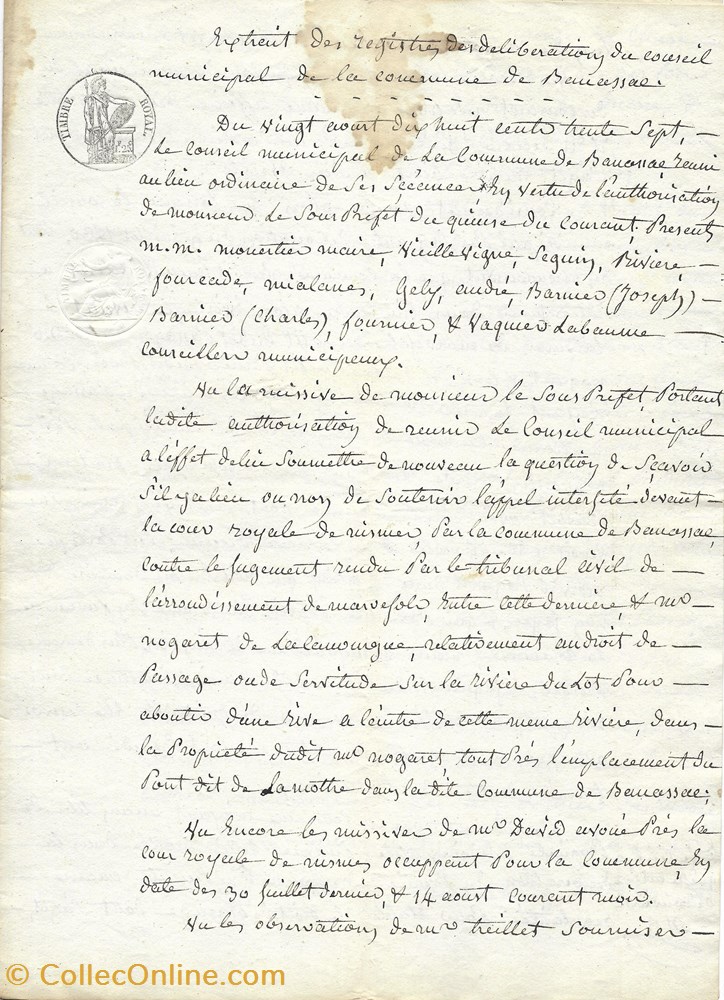 Extrait des registres des deliberation du conseil
municipal de la commune de Banassac.
Du vingt aout dix huit cents trente Sept, —
Le Conseil municipal de La Commune de Banassac reuni
au lieu ordinaire de Ses Séances, En vertu de l'authorisation
de monsieur Le Sous Prefet du quinse du courant, Presents
m.m. monestier maire, Vieillevigne, Seguin, Rivière, —
fourcade, mialanes, Gely, andré, Barnier (Joseph) —
Barnier (Charles), fournier, & Vaquier Labaume —
conseillers municipeaux.
Vu la missive de monsieur le Sous Prefet, Portant
ladite authorisation de reunir Le Conseil municipal
a l'éffet de lui Soumettre de nouveau la question de Sçavoir
S'il ya lieu ou non de Soutenir l'appel interjété devant —
la cour royale de nismes, Par la commune de Banassac,
contre le Jugement rendu Par le tribunal Civil de —
l'arrondissement de marvejols, Entre Cette dernière, & mr —
nogaret de Lalamourgue, relativement au droit de —
Passage ou de Servitude Sur la rivière du Lot Pour —
aboutir d'une rive a l'autre de cette meme rivière, dans —
la Propriété dudit mr nogaret, tout Prés l'emplacement du
Pont dit de Lamothe dans la dite Commune de Banassac;
Vu Encore les missives de mr David avoué Prés la
cour royale de nismes occuppant Pour la Commune, En
date des 30 Juillet dernier, & 14 aoust courant mois.
Vu les observations de mr treillet Soumises —
TIMBRE ROYAL
© CollecOnline.com